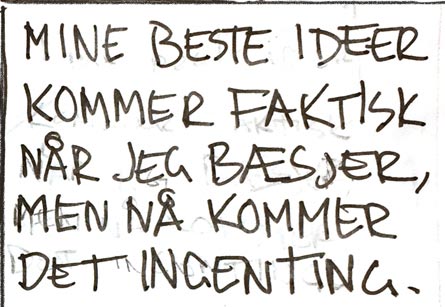 MINE BESTE IDEER
KOMMER FAKTISK
NÅR JEG BÆSJER,
MEN NÅ KOMMER
DET INGENTING.